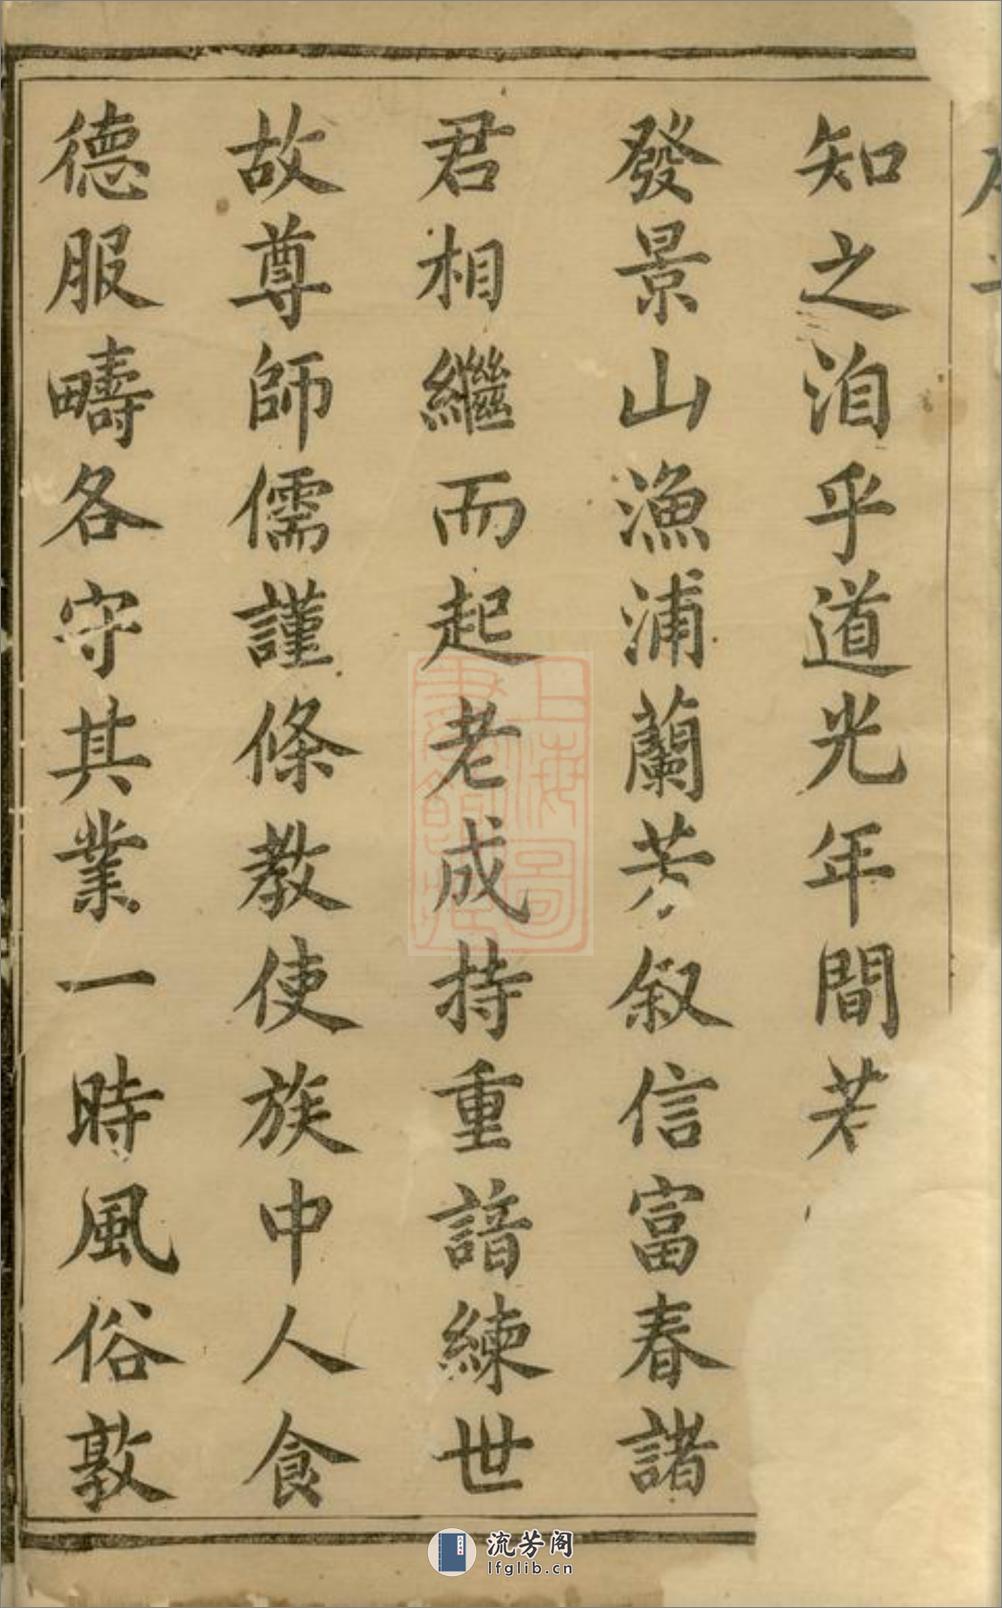 知之洎乎道光年間若
發景山漁浦蘭芳叙信富春諸
君相繼而起老成持重諳練世
故尊師儒謹條教使族中人食
德服疇各守其業一時風俗敦
上海圖書館藏
流芳阁
lfglib.cn